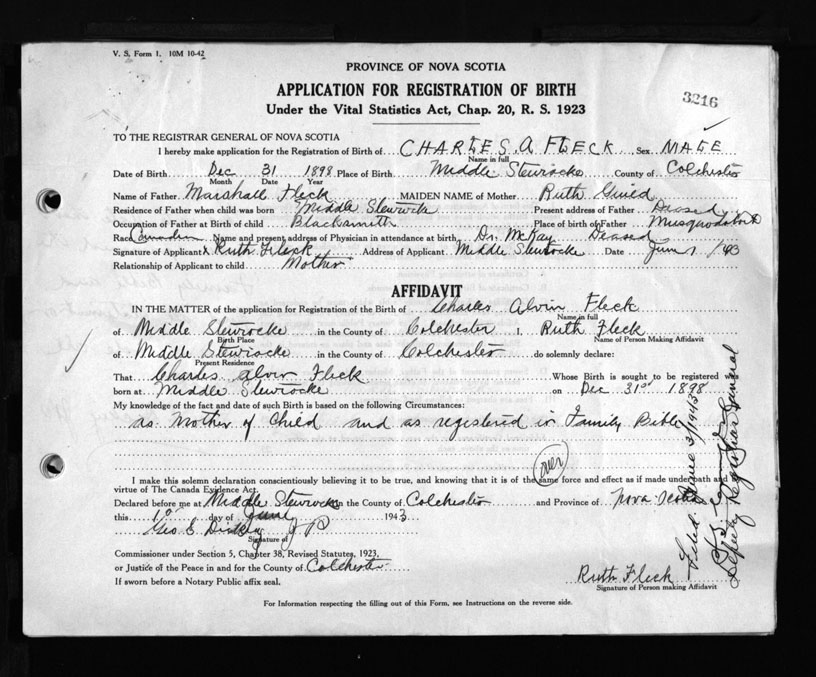 V. S. Form 1. 10M 10-42
PROVINCE OF NOVA SCOTIA
APPLICATION FOR REGISTRATION OF BIRTH
3216
Under the Vital Statistics Act, Chap. 20, R. S. 1923
TO THE REGISTRAR GENERAL OF NOVA SCOTIA
I hereby make application for the Registration of Birth of CHARLES. A FLECK Sex MALE
Name in full
Date of Birth Dec 31 1898 Place of Birth Middle Stewiacke County of Colchester
Month Date Year
Name of Father Marshall Fleck MAIDEN NAME of Mother Ruth
Residence of Father when child was born Middle Stewiacke Present address of Father Deased
Occupation of Father at Birth of child Blacksmith Place of birth of Father
Race Canadian Name and present address of Physician in attendance at birth Dr. McKay Deased
Signature of Applicant x Ruth Fleck Address of Applicant Middle Stewiacke Date June 1 / 43
Relationship of Applicant to child Mother
AFFIDAVIT
IN THE MATTER of the application for Registration of the Birth of Charles Alvin Fleck
Name in full
of Middle Stewiacke in the County of Colchester I, Ruth Fleck
Birth Place Name of Person Making Affidavit
of Middle Stewiacke in the County of Colchester do solemnly declare:
Present Residence
That Charles Alvin Fleck Whose Birth is sought to be registered was
born at Middle Stewiacke on Dec 31st 1898
My knowledge of the fact and date of such Birth is based on the following Circumstances:
as Mother of Child and as registered in Family Bible
(over)
I make this solemn declaration conscientiously believing it to be true, and knowing that it is of the same force and effect as if made under oath and by
virtue of The Canada Evidence Act.
Declared before me at Middle Stewiacke in the County of Colchester and Province of Nova Scotia
this 1st day of June 1943
Geo E Dickey J P
Signature of
Commissioner under Section 5, Chapter 38, Revised Statutes, 1923,
or Justice of the Peace in and for the County of Colchester
If sworn before a Notary Public affix seal.
Ruth Fleck
Signature of Person making Affidavit
For Information respecting the filling out of this Form, see Instructions on the reverse side.
Filed. June 3/1943
Deputy Registrar General